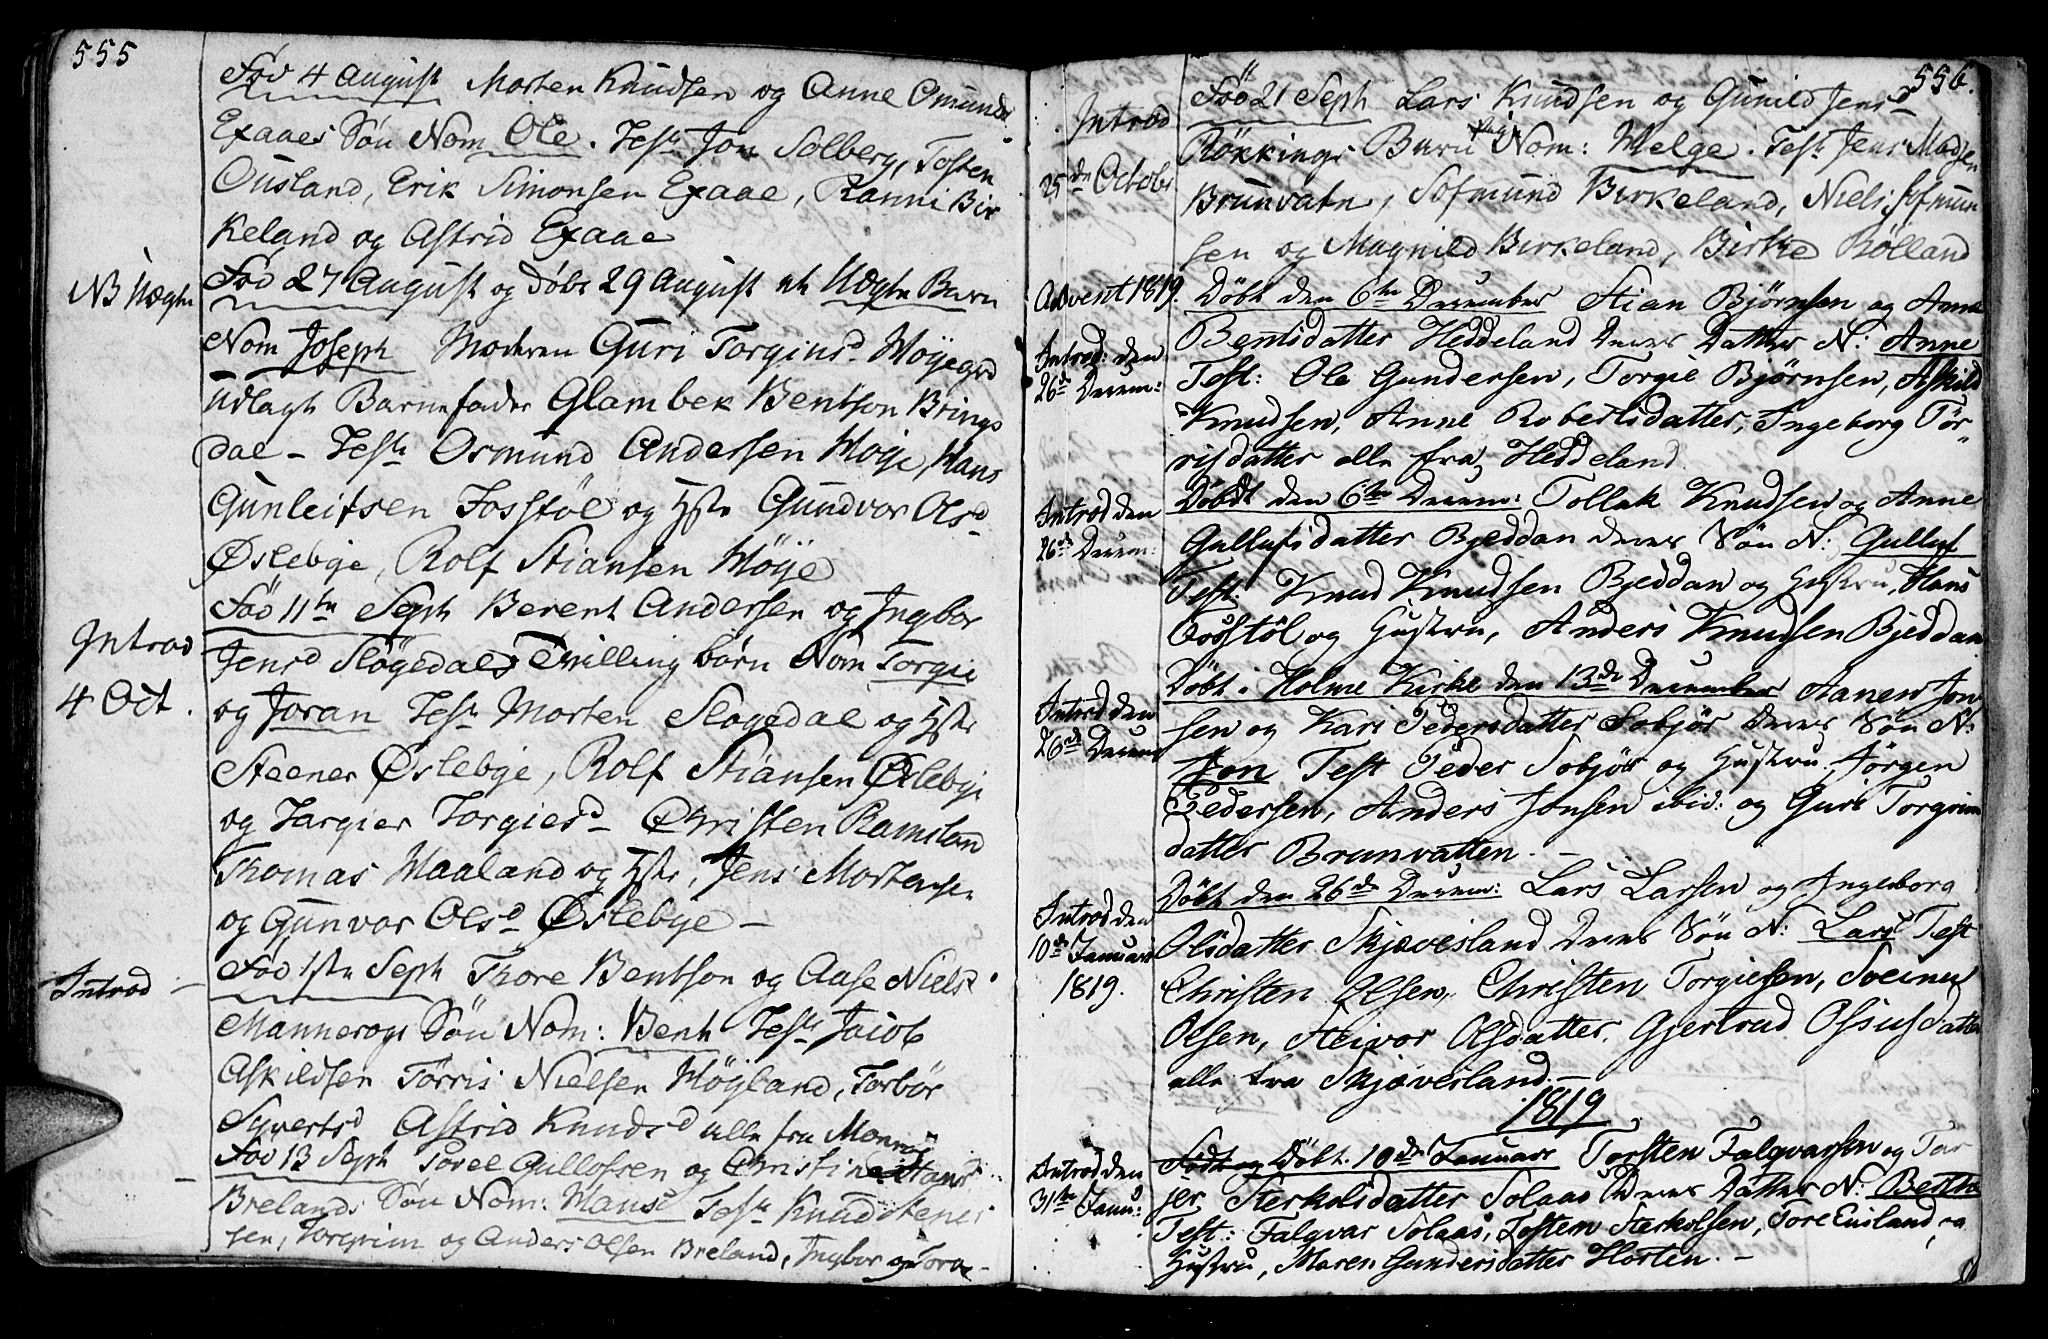 555
Fød 4 August Morten Knudsen og Anne Omunds
Exaaes Søn Nom Ole. Test Jon Solberg, Tosten
Ousland, Erik Simonsen Exaae, Ranni Bir
keland og Astrid Exaae
NB Uægte
Fød 27 August og døbt 29 August et Uægte Barn
Nom Joseph Moderen Guri Torginsd Høyegrd
Udlagt Barnefader Glambek Bentson Brings
dal - Test Osmund Andersen Høje, Hans
Gunleifsen Fosstøl og Hstr Gundvor Olsd
Øslebye, Rolf Stiansen Høye
Introd
4 Oct.
Fød 11te Sept Berent Andersen og Ingbor
Jensd Sløgedals Tvilling børn Nom Torgie
og Joran Test Morten Slogedal og Hstr
Steener Øslebye, Rolf Stiansen Øslebye
og Targier Torgiesd - Christen Ramsland
Thomas Haaland og Hstr, Jens Mortensen
og Gunvor Olsd Øslebye -
Introd
Fød 1ste Sept Thore Bentson og Aase Nielsd
Mannerogs Søn Nom: Bent Test Jacob
Askildsen Tørris Nielsen Høgland, Torbør
Syvertsd Astrid Knudsd alle fra Monnrog
Fød 13 Sept Torel Gullofsen og Christine Hansd
Brelands Søn Nom: Hans Test Knud Stener
sen, Torgrim og Anders Olsen Breland, Ingbor og Tora -
556.
Introd
25de Octobr
Fød 21 Sept Lars Knudsen og Gunild Jensd
Røkkings Barn Nom: Helge. Test Jens Madsen
Brunvatn, Sofmund Birkeland, Niels Sofmun
sen og Magnild Birkeland, Birke Rølland
Advent 1819.
Introd: den
26de Decem:
Døbt den 6te December Stian Bjørnsen og Anne
Bentsdatter Heddeland deres Datter N: Anne
Test: Ole Gundersen, Torgie Bjørnsen, Askild
Knudsen, Anne Robertsdatter, Ingeborg Tør-
risdatter alle fra Heddeland
Introd den
26de Decem:
Døbt den 6te Decem: Tollak Knudsen og Anne
Gullufsdatter Bjeddan deres Søn N: Gulluf
Test: Knud Knudsen Bjeddan og Hustru, Hans
Fosstøl og Hustru, Anders Knudsen Bjeddan
Introd den
26de Decem
Døbt i Holme Kirke den 13de December Aanen Jon
sen og Kari Pedersdatter Sobjør deres Søn N:
Jon Test Peder Sobjør og Hustru, Jørgen
Pedersen, Anders Jonsen ibid: og Guri Torgrim
datter Brunvatten. -
Introd den
10de Januari
1819.
Døbt den 26de Decem: Lars Larsen og Ingeborg
Olsdatter Skjævesland deres Søn N: Lars Test
Christen Olsen, Christen Torgiesen, Sveinu
Olsen, Steivor Olsdatter, Gjertrud Osiusdatter
alle fra Skjævesland. -
1819
Introd den
31te Janu:
Født og Døbt. 10de Januari Torsten Falqvarssen og Tar
jer Sterkolsdatter Solaas Deres Datter N: Berthe
Test: Falqvar Solaas, Tostem Sterkolsen, Tore Eusland, og
Hustru, Maren Gundersdatter Horten. -